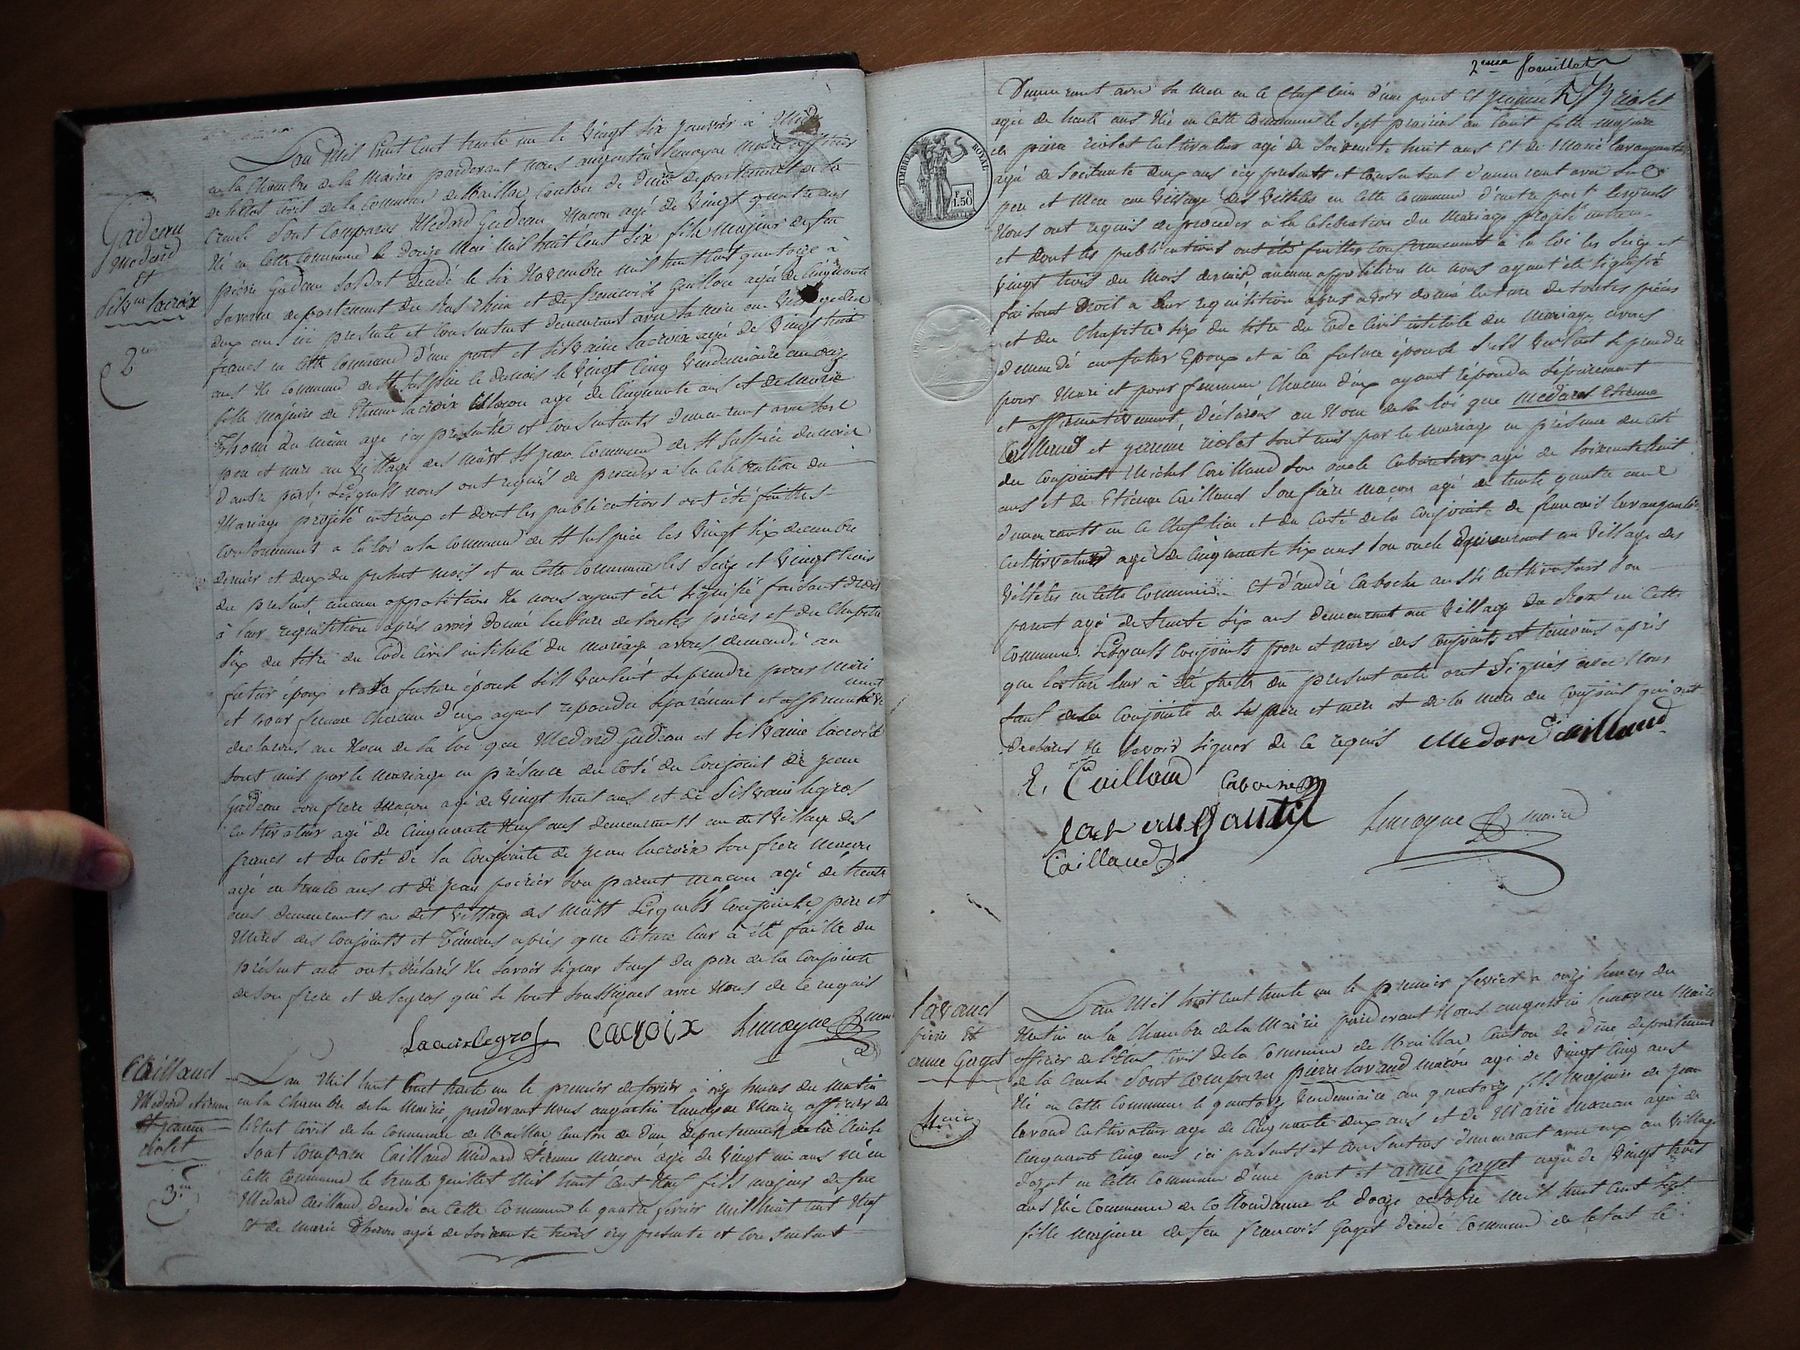 Gadeau
Medard
Et
Silv.ne Lacroix
2.me
L'an mil huit cent trente un le vingt six janvier à midi
en la Chambre de la Mairie pardevant nous augustin Lemoyne Maire officier
de l'etat Civil de la Commune de Naillac Canton de Dun departement de la
Creuse Sont Comparus Medard Gadeau Macon agé de Vingt quatre ans
Né en cette commune le douze Mai mil huit cent Six fils majeur de feu
pierre Gadeau Soldat Décédé le Six Novembre mil huit cent quatorze à
Saverne departement du Bas Rhin et de francoise Guillon agée de Cinquante
deux ans ici presente et consentant demeurant avec sa mère au Village des
francs en cette Commune d'une part et Silvaine Lacroix agé de Vingt huit
ans Né Commune de St Sulpice le Dunois le Vingt Cinq Vendemiaire an onze
fille majeure de Etienne Lacroix Macon agé de Cinquante ans et de Marie
Thomas du même age icy presents et consentants demeurant avec Ses
pere et mere au Village des Mâts St jean Commune de St Sulpice Dunois
d'autre part; Lesquels nous ont requis de proceder à la Célébration du
Mariage projeté entr'eux et dont les publications ont été faittes
Conformement a la loi a la Commune de St Sulpice les Vingt Six decembre
dernier et deux du présent mois et en cette commune les Seize et Vingt trois
du present, aucune opposition Ne nous ayant été Signifié faisant droit
à leur requisition apres avoir donné lecture de toutes pièces et du Chapitre
Six du titre du Code Civil intitulé du Mariage avons demandé au
futur époux et à la future épouse S'ils veulent Se prendre pour Mari
et pour femme Chacun d'eux ayant repondu Séparément et affirmativement
declarons au Nom de la loi que Medard Gadeau et Silvaine Lacroix
Sont unis par le Mariage en présence du Coté du Conjoint de jean
Gadeau Son frere Macon agé de Vingt huit ans et de Silvain Legros
Cultivateur agé de Cinquante Neuf ans demeurants au dit Village des
francs et du Coté de la Conjointe de jean Lacroix Son frere Macon
agé de trente ans et de jean poirier Son parent Macon agé de trente
ans demeurants au dit Village des Mâts Lesquels Conjoints, père et
Mères des Conjoints et Témoins après que lecture leur à été faitte du
présent acte ont déclarés Ne Savoir Signer Sauf du père de la Conjointe
de Son frere et de Legros qui Se Sont Soussignés avec Nous de Ce requis
Lacroix Legros Lacroix Lemoyne Maire
Caillaud
Medard Etienne
et jeanne
riolet
3.me
L'an Mil huit Cent trente un le premier fevrier à onze heures du Matin
en la Chambre de la Mairie pardevant Nous augustin Lemoyne Maire officier de
l'Etat Civil de la Commune de Naillac Canton de Dun departement de la Creuse
Sont Comparu Caillaud Medard Etienne Macon age de Vingt un ans né en
cette Commune le trente juillet Mil huit Cent Neuf fils majeur de feu
Medard Caillaud, decedé en Cette Commune le quatre fevrier mil huit cent Neuf
Et de Marie Thomas agée de Soixante trois icy presente et Consentant
2eme feuillet
Demeurant avec Sa Mere en le Chef lieu d'une part Et jeanne Riolet
agée de trente ans Né en Cette Commune le Sept prairial an huit fille majeure
de pierre riolet Cultivateur agé de Soixante huit ans Et de Marie
agée de Soixante deux ans icy presents et Consentant demeurant avec Ses
pere et Mere au Village des en Cette Commune d'autre part Lesquels
Nous ont requis de proceder à la Célébration du Mariage projeté entreux
et dont les publications ont été faittes Conformement à la loi les Seize et
Vingt trois du Mois dernier, aucune opposition ne nous ayant été Signifié
faisant Droit a leur requisition apres avoir donné lecture de toutes pièces
et du Chapitre Six du titre du Code Civil intitulé du Mariage avons
demandé au futur Epoux et à la future épouse S'ils veulent Se prendre
pour Mari et pour femme Chacun d'eux ayant répondu Séparement
et affirmativement, Déclarons au Nom de la loi que Medard Etienne
Caillaud et jeanne riolet Sont unis par le Mariage en présence du Coté
du Conjoint Michel Caillaud Son oncle Cabaretier agé de Soixante huit
ans et de Etienne Caillaud Son frère Macon agé de trente quatre ans
demeurants en ce Chef lieu et du Coté de la Conjointe de francois
Cultivateur agé de Cinquante Six ans Son oncle demeurant au Village des
en Cette Commune Et d'andré Caboche aussi Cultivateur Son
parent agé de trente Six ans demeurant au Village du en Cette
Commune. Lesquels Conjoints pere et meres des Conjoints et temoins après
que lecture leur à été faitte du present acte ont Signés avec Nous
Sauf de la Conjointe de Ses père et mere et de la mere du Conjoint qui ont
declarés Ne Savoir Signer de Ce requis Medard Caillaud
E. Caillaud Caboche
Caillaud
Lemoyne maire
TIMBRE ROYAL
1.50
Lavaud
pierre Et
anne Gayet
L'an Mil huit cent trente un le premier fevrier à onze heures du
Matin en la Chambre de la Mairie pardevant Nous augustin Lemoyne Maire
officier de l'Etat Civil de la Commune de Naillac Canton de Dun departement
de la Creuse Sont Comparu pierre Lavaud macon agé de Vingt Cinq ans
Né en Cette Commune le quatorze Vendemiaire an quatorze fils Majeur de jean
Lavaud Cultivateur agé de Cinquante deux ans et de Marie Moreau agée de
Cinquante Cinq ans ici présents et Consentans demeurant avec eux au Village
en Cette Commune d'une part et anne Gayet agée de Vingt trois
ans Né Commune de Colondanne le Douze octobre Mil huit Cent Sept
fille Majeure de feu francois Gayet Décédé Commune de Lafat le